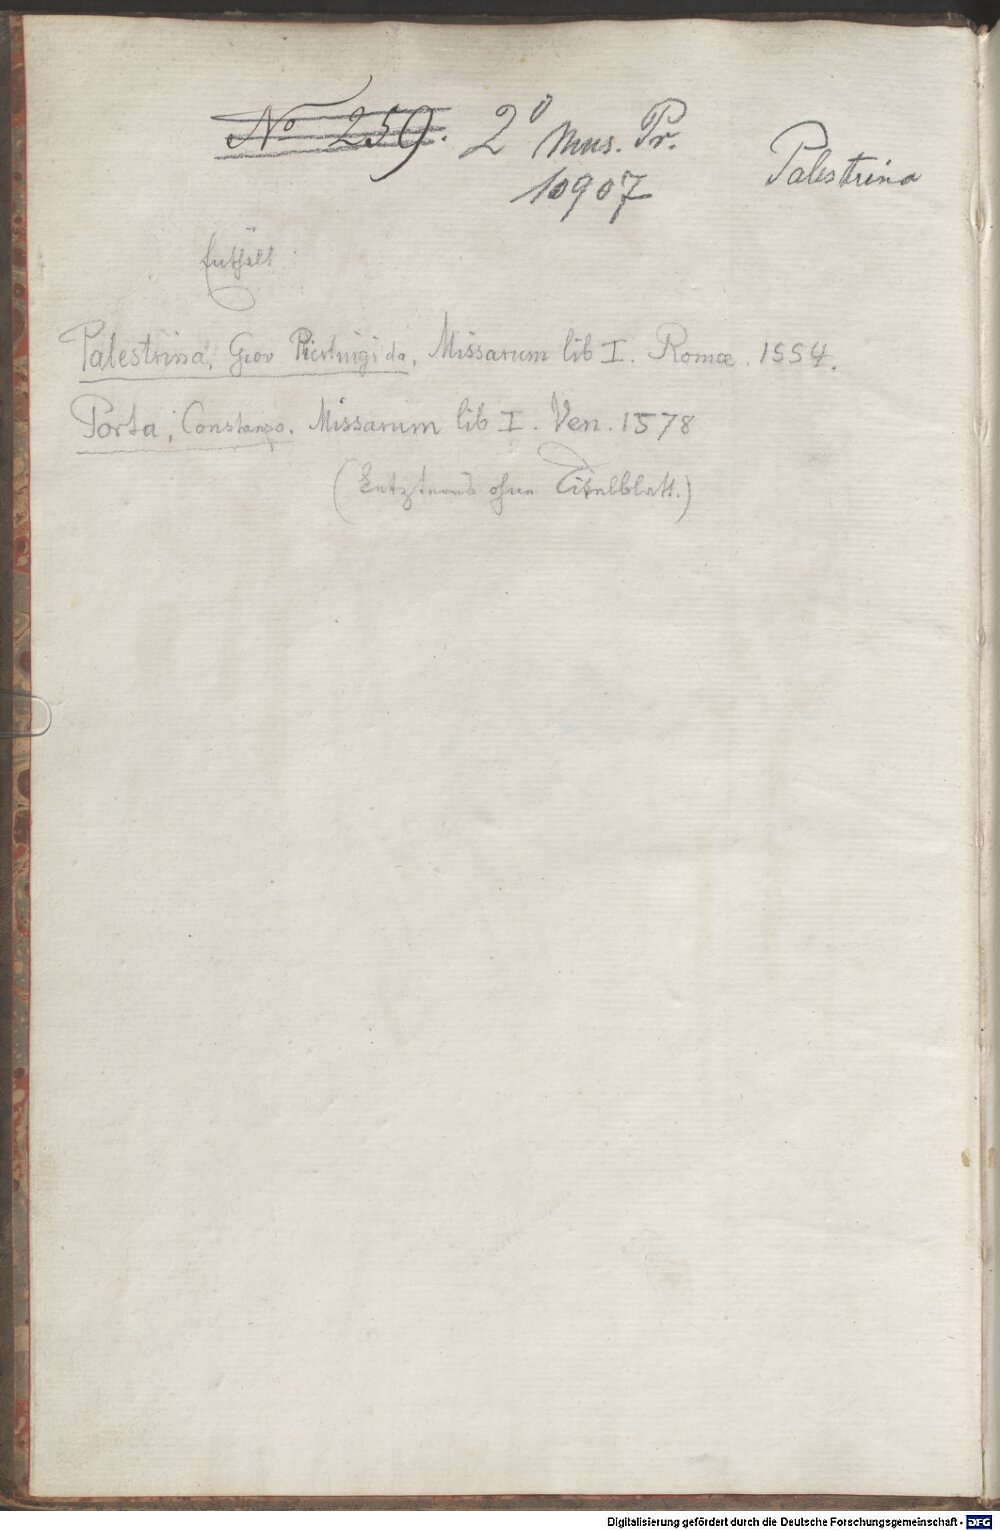 No 259. 2° Mus. Pr.
10907
Palestrina
Enthält:
Palestrina, Giov Pierluigi da, Missarum lib I. Romæ. 1554.
Porta, Constanzo. Missarum lib I. Ven. 1578
(Letzteres ohne Titelblatt.)
Digitalisierung gefördert durch die Deutsche Forschungsgemeinschaft - DFG